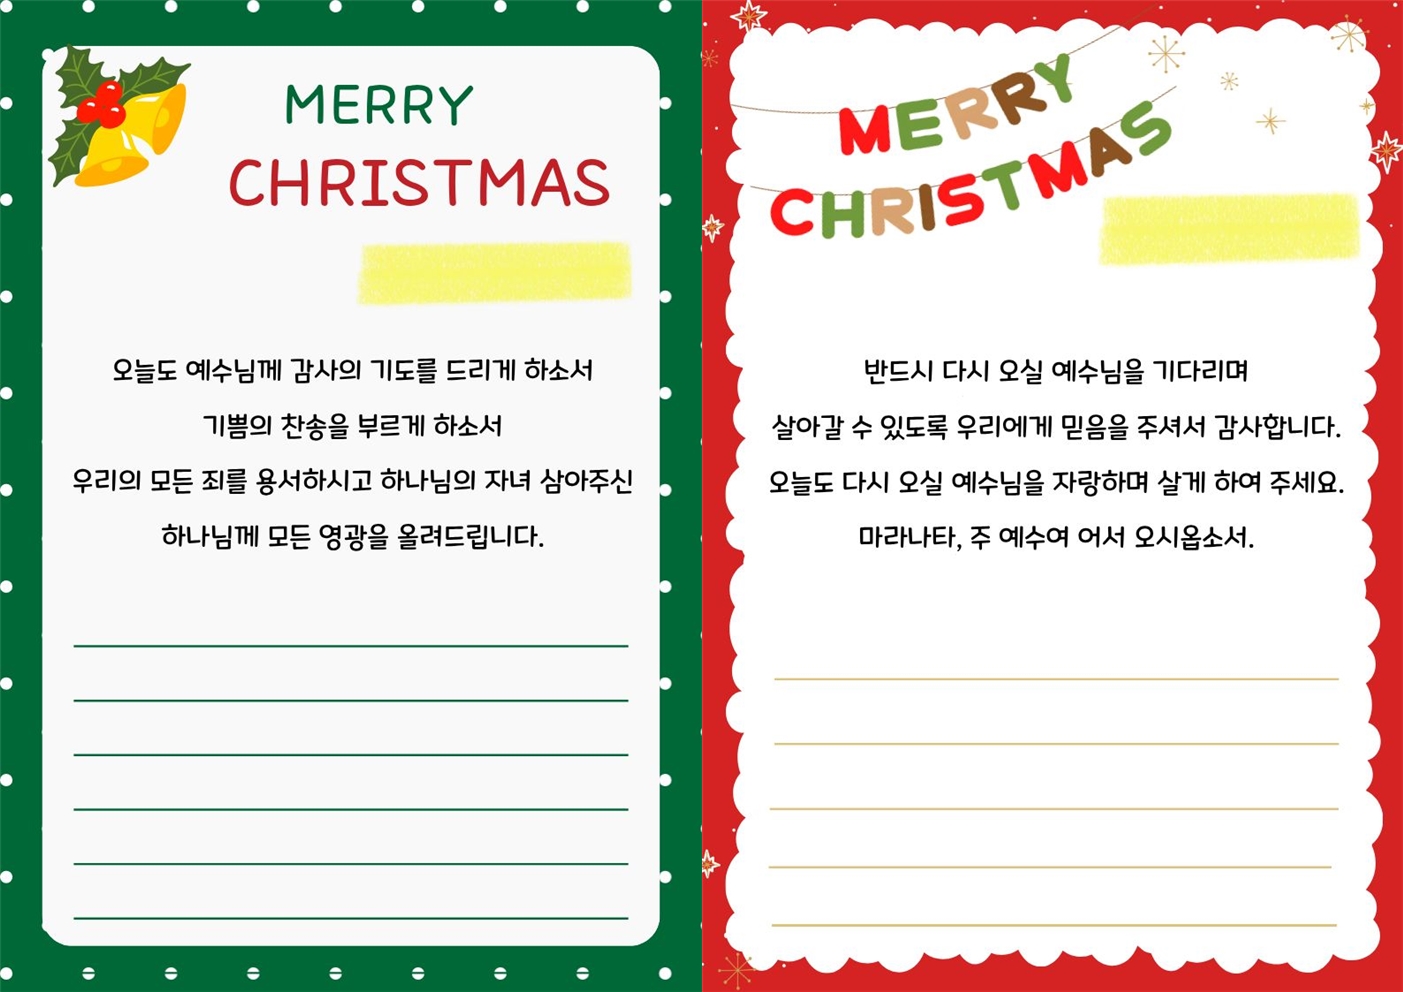 MERRY
CHRISTMAS
오늘도 예수님께 감사의 기도를 드리게 하소서
기쁨의 찬송을 부르게 하소서
우리의 모든 죄를 용서하시고 하나님의 자녀 삼아주신
하나님께 모든 영광을 올려드립니다.
MERRY
CHRISTMAS
반드시 다시 오실 예수님을 기다리며
살아갈 수 있도록 우리에게 믿음을 주셔서 감사합니다.
오늘도 다시 오실 예수님을 자랑하며 살게 하여 주세요.
마라나타, 주 예수여 어서 오시옵소서.